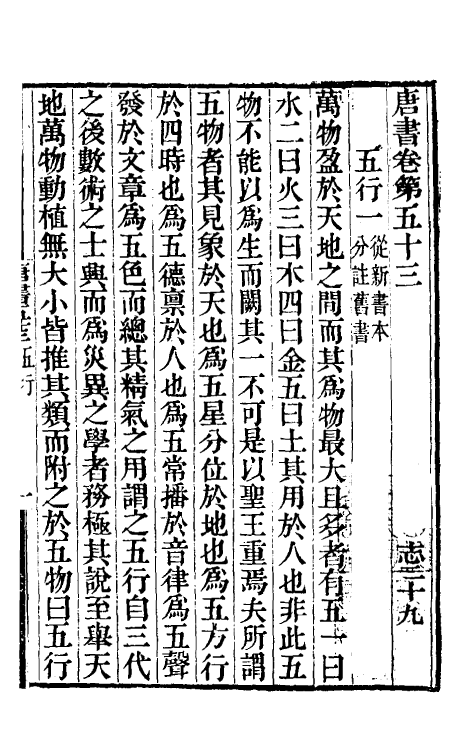 唐書卷第五十三　志二十九
五行一從新書本分註舊書
萬物盈於天地之間而其爲物最大且多者有五一曰
水二曰火三曰木四曰金五曰土其用於人也非此五
物不能以爲生而闕其一不可是以聖王重焉夫所謂
五物者其見象於天也爲五星分位於地也爲五方行
於四時也爲五德禀於人也爲五常播於音律爲五聲
發於文章爲五色而總其精氣之用謂之五行自三代
之後數術之士興而爲災異之學者務極其說至舉天
地萬物動植無大小皆推其類而附之於五物曰五行
五行
一